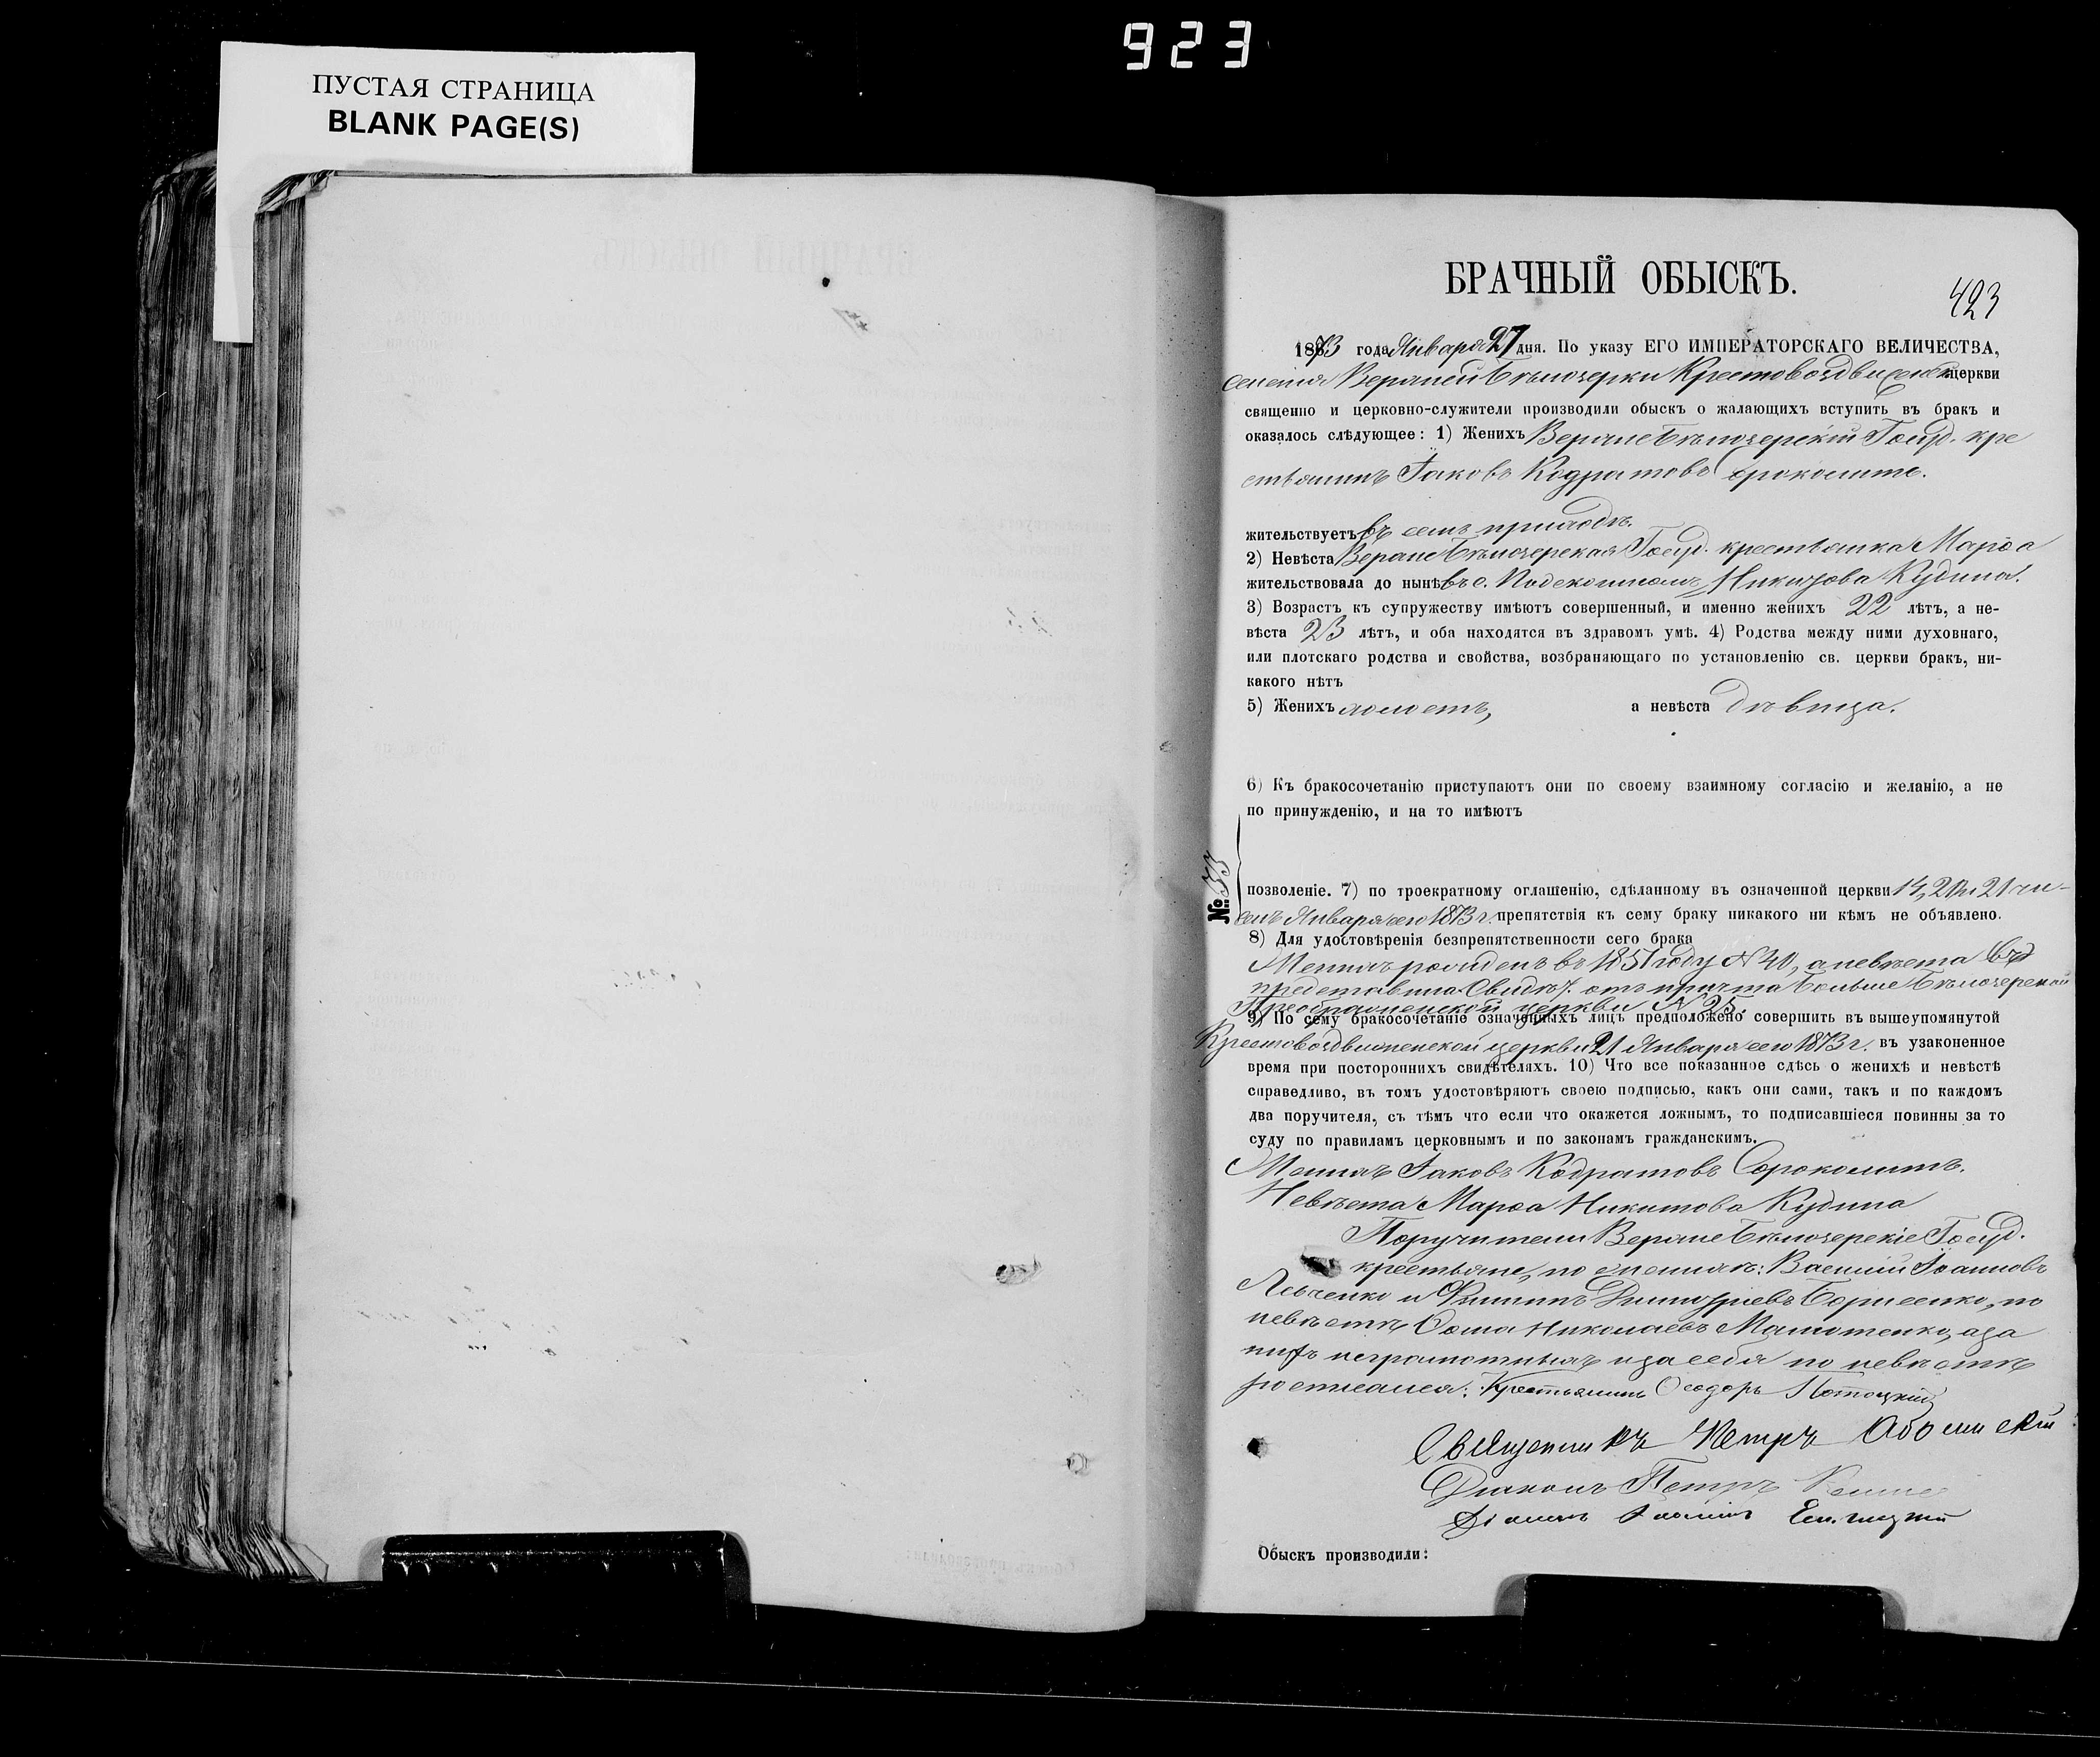 923
ПУСТАЯ СТРАНИЦА
BLANK PAGE(S)
БРАЧНЫЙ ОБЫСКЪ.
423
1873 года Января 27 дня. По указу ЕГО ИМПЕРАТОРСКАГО ВЕЛИЧЕСТВА,
селенія Верхней Бѣлозерки Крестовоздвиженск. церкви
священно и церковно-служители производили обыскъ о жалающихъ вступить въ бракъ и
оказалось слѣдующее: 1) Женихъ Верхнебѣлозерскій Госуд. кре
стьянинъ Іаковъ Кодратовъ Сороколитъ.
жительствуетъ въ семъ приходѣ.
2) Невѣста Верхнебѣлозерская Госуд. крестьянка Марѳа
жительствовала до нынѣ въ с. Никитова Кудина.
3) Возрастъ къ супружеству имѣютъ совершенный, и именно женихъ 22 лѣтъ, а не-
вѣста 23 лѣтъ, и оба находятся въ здравомъ умѣ. 4) Родства между ними духовнаго,
или плотскаго родства и свойства, возбраняющаго по установленію св. церкви бракъ, ни-
какого нѣтъ
5) Женихъ холостъ, а невѣста дѣвица.
6) Къ бракосочетанію приступаютъ они по своему взаимному согласію и желанію, а не
по принужденію, и на то имѣютъ
№ 33
позволеніе. 7) по троекратному оглашенію, сдѣланному въ означенной церкви 14, 21 чи-
селъ Января сего 1873 г. препятствія къ сему браку никакого ни кѣмъ не объявлено.
8) Для удостовѣренія безпрепятственности сего брака
Женихъ рожденъ въ 1851 году № 40, а невѣста
представила Свидѣт. отъ причта Больше Бѣлозерской
Преображенской церкви № 25.
9) По сему бракосочетаніе означенныхъ лицъ предположено совершить въ вышеупомянутой
Крестовоздвиженской церкви 21 Января сего 1873 г. въ узаконенное
время при постороннихъ свидѣтеляхъ. 10) Что все показанное сдѣсь о женихѣ и невѣстѣ
справедливо, въ томъ удостовѣряютъ своею подписью, какъ они сами, такъ и по каждомъ
два поручителя, съ тѣмъ что если что окажется ложнымъ, то подписавшіеся повинны за то
суду по правиламъ церковнымъ и по законамъ гражданскимъ.
Женихъ Іаковъ Кодратовъ Сороколитъ.
Невѣста Марѳа Никитова Кудина
Поручители Верхнебѣлозерскіе Госуд.
крестьяне, по женихѣ: Василій Іоанновъ
Левченко и Филиппъ Димитріевъ Борисенко, по
невѣстѣ Ѳома Николаевъ а за
нихъ неграмотныхъ и за себя по невѣстѣ
росписался: Крестьянинъ Ѳеодоръ Потоцкій
Священникъ Петръ
Діаконъ Петръ
Обыскъ производили: